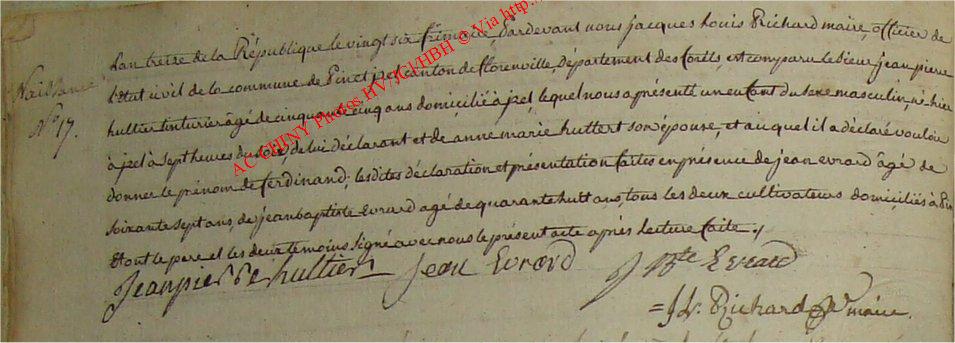 Naissance
N° 17.
Lan treize de la République le vingt six frimaire, Pardevant nous jacques Louis Richard maire, officier de
l'Etat civil de la commune de Pin et jzel canton de florenville, département des forêts, est comparu le sieur jean pierre
hultier tinturier âgé de cinquante cinq ans domicilié à jzel, lequel nous a présenté un enfant du sexe masculin, né hier
à jzel à sept heures du soir, de lui déclarant et de anne marie huttert son épouse, et auquel il a déclaré vouloir
donner le prénom de ferdinand; lesdites déclaration et présentation faites en présence de jean Evrard âgé de
soixante sept ans, de jean baptiste Evrard agé de quarante huit ans, tous les deux cultivateurs domiciliés à Pin
Et ont le pere et les deux temoins signé avec nous le présent acte après lecture faite.
Jean pier hultier Jean Evrard J Bte Evrard
= J L. Richard maire.
AC CHINY Photos HV/JGl/HBH © Via http: